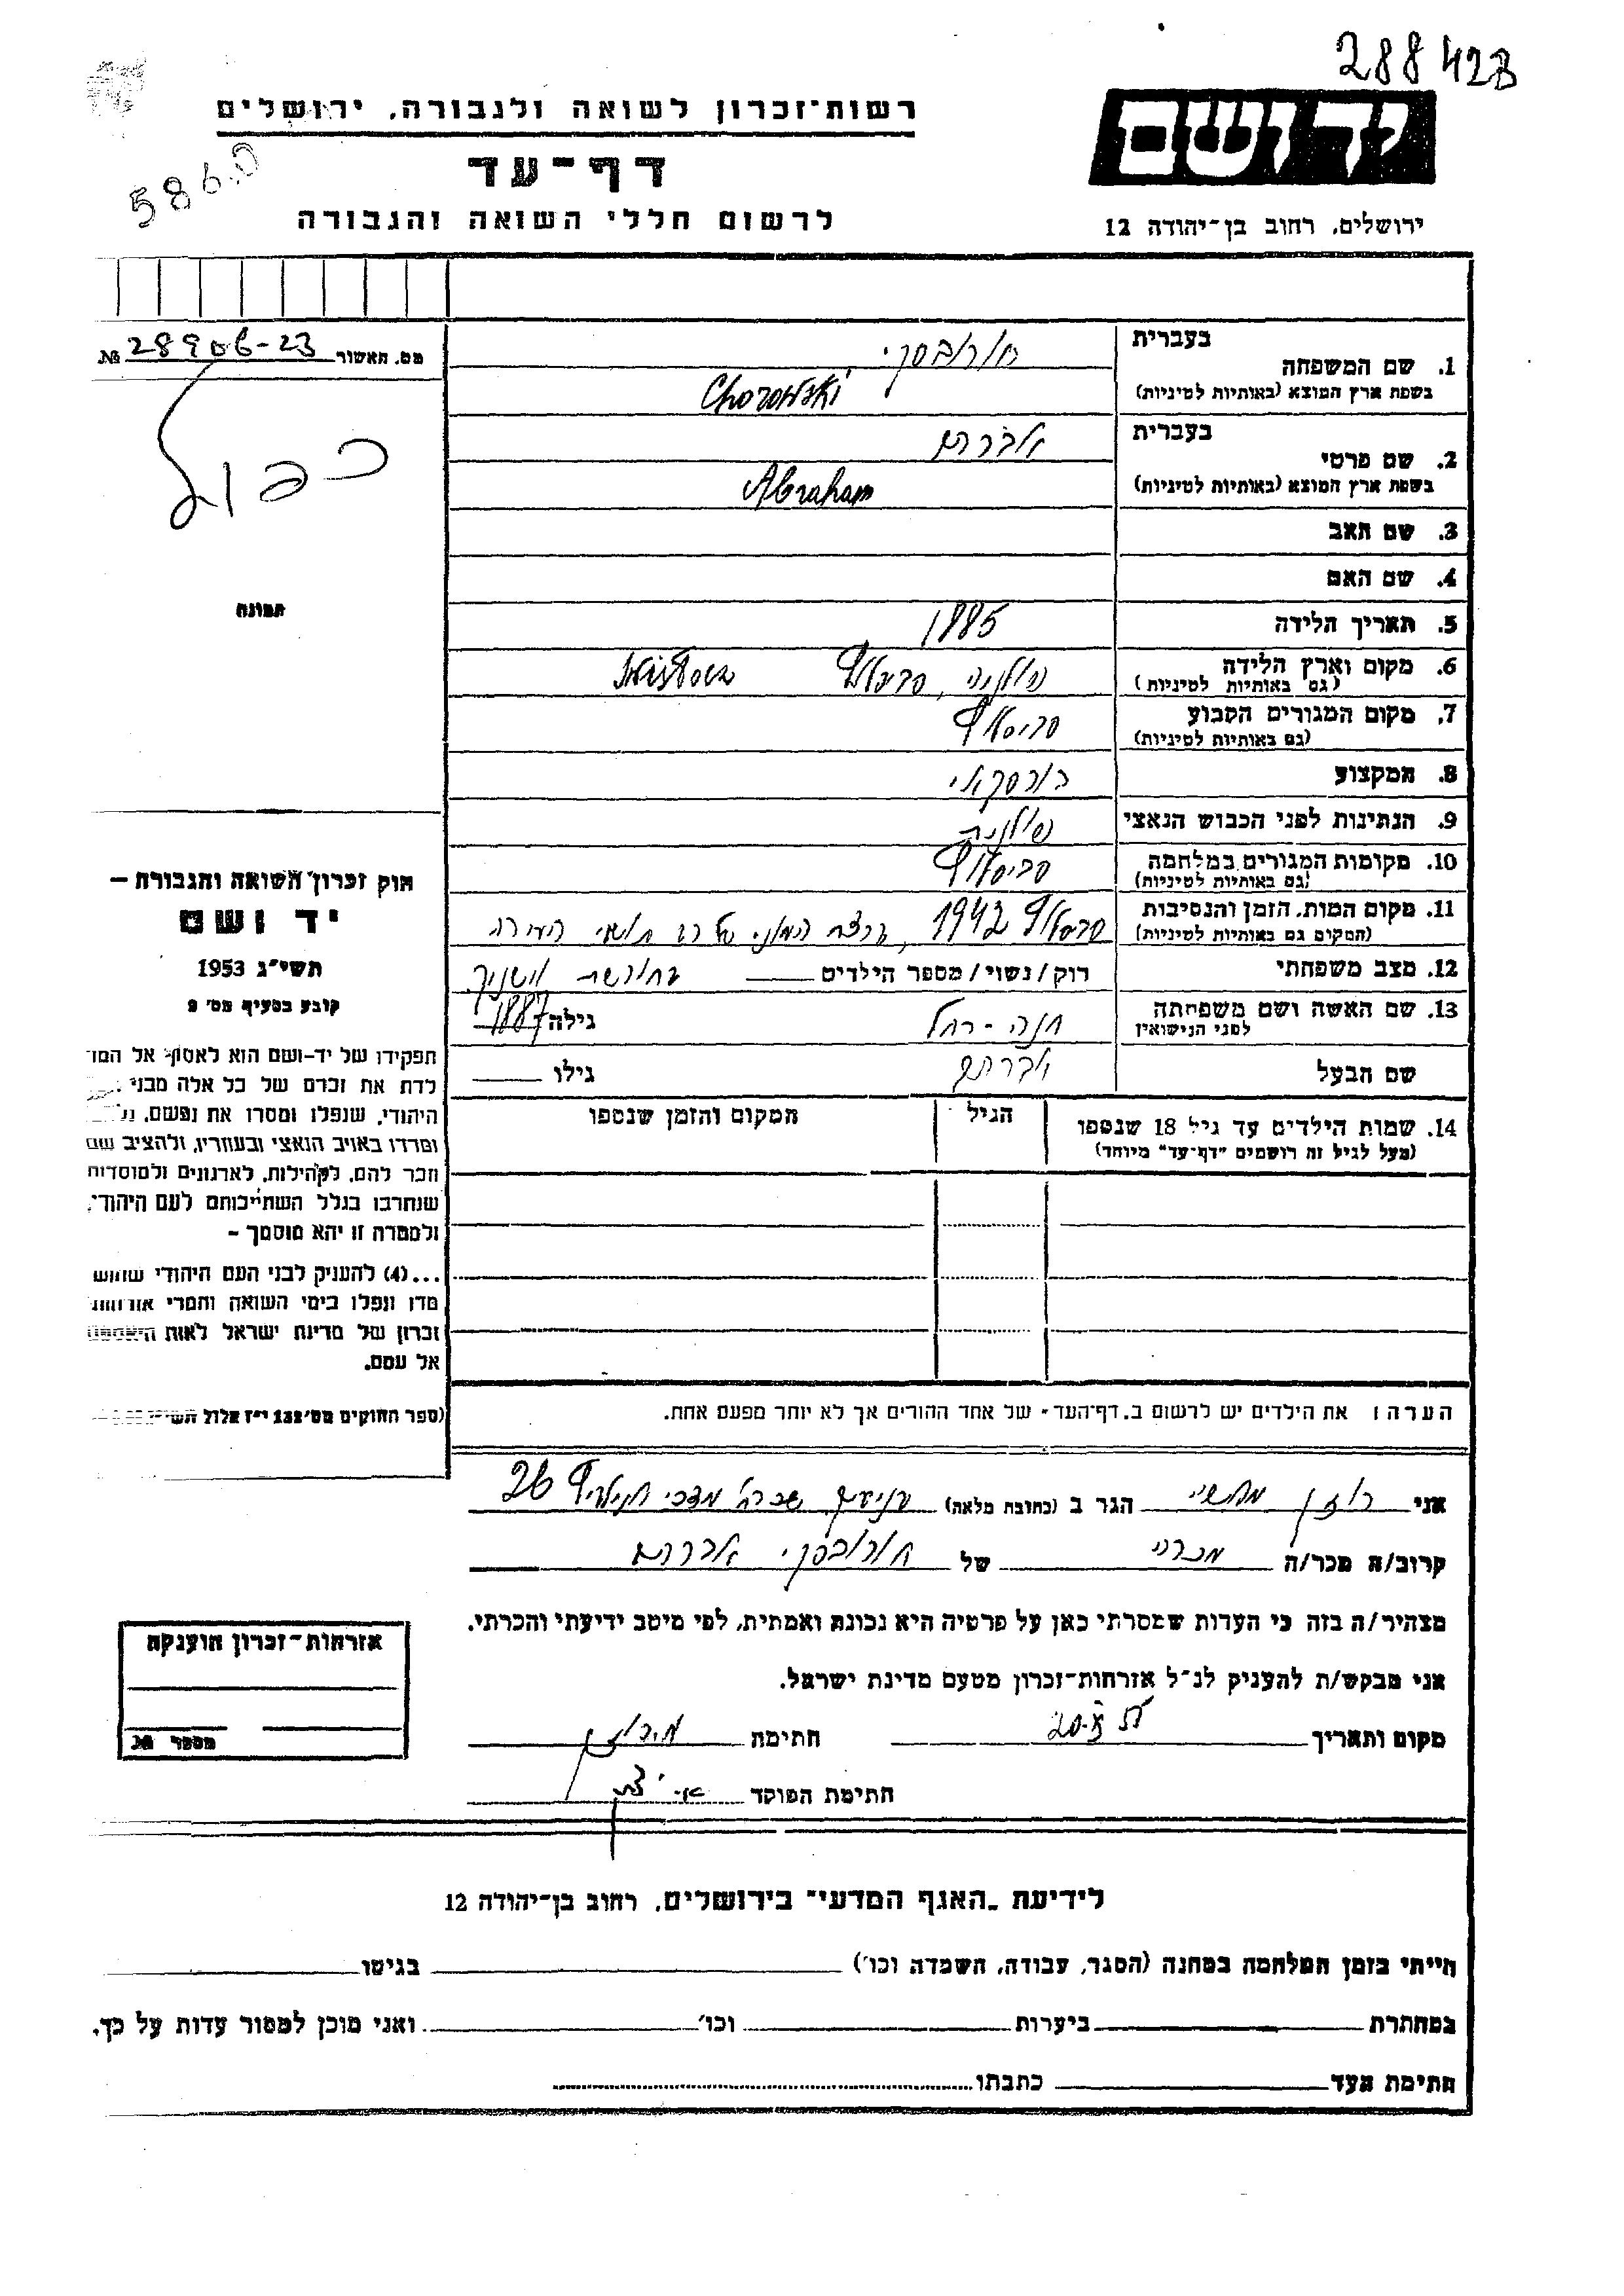 288428
רשות־זכרון לשואה ולגבורה, ירושלים
יד ושם
דף־עד
5860
לרשום חללי השואה והגבורה
ירושלים, רחוב בן־יהודה 12
מס. תאשור № 28906-23
כפול
תמונה
בעברית
1. שם המשפחה חורובסקי
בשפת ארץ המוצא (באותיות לטיניות) Chorowski
בעברית
2. שם פרטי אברהם
בשפת ארץ המוצא (באותיות לטיניות) Abraham
3. שם האב
4. שם האם
5. תאריך הלידה 1885
6. מקום וארץ הלידה פולניה,
(גם באותיות לטיניות)
7. מקום המגורים הקבוע
(גם באותיות לטיניות)
8. המקצוע בורסקאי
9. הנתינות לפני הכבוש הנאצי פולניה
10. מקומות המגורים במלחמה
(גם באותיות לטיניות)
11. מקום המות, הזמן והנסיבות 1942, ברצח המוני של רב תושבי העירה
(המקום גם באותיות לטיניות)
12. מצב משפחתי רוק/נשוי/מספר הילדים בחורשת
13. שם האשה ושם משפחתה חנה-רחל גילה 1887
לפני הנישואין
שם הבעל אברהם גילו
14. שמות הילדים עד גיל 18 שנספו הגיל המקום והזמן שנספו
(מעל לגיל זה רושמים "דף־עד" מיוחד)
חוק זכרון השואה והגבורה –
יד ושם
תשי"ג 1953
קובע בסעיף מס' 2
תפקידו של יד-ושם הוא לאסוף אל המו
לדת את זכרם של כל אלה מבני
היהודי, שנפלו ומסרו את נפשם,
ומרדו באויב הנאצי ובעוזריו, ולהציב שם
וזכר להם, לקהילות, לארגונים ולמוסדות
שנחרבו בגלל השתייכותם לעם היהודי,
ולמטרה זו יהא מוסמך –
...(4) להעניק לבני העם היהודי שהוש
מדו ונפלו בימי השואה והמרי אזרחות
זכרון של מדינת ישראל לאות היאספם
אל עמם.
(ספר החוקים מס' 132 י"ז אלול תשי"ג
הערה: את הילדים יש לרשום ב„דף־העד" של אחד ההורים אך לא יותר מפעם אחת.
אני רוזן הגר ב (כתובת מלאה) 26
קרוב/ה מכר/ה מכרני של חורובסקי אברהם
מצהיר/ה בזה כי העדות שמסרתי כאן על פרטיה היא נכונה ואמתית, לפי מיטב ידיעתי והכרתי.
אני מבקש/ת להעניק לנ"ל אזרחות־זכרון מטעם מדינת ישראל.
מקום ותאריך חתימה מ. רוזן
חתימת הפוקד
אזרחות־זכרון הוענקה
מספר №
לידיעת „האגף המדעי" בירושלים, רחוב בן־יהודה 12
הייתי בזמן המלחמה במחנה (הסגר, עבודה, השמדה וכו') בגיטו
במחתרת ביערות וכו' ואני מוכן למסור עדות על כך.
חתימת העד כתבתו